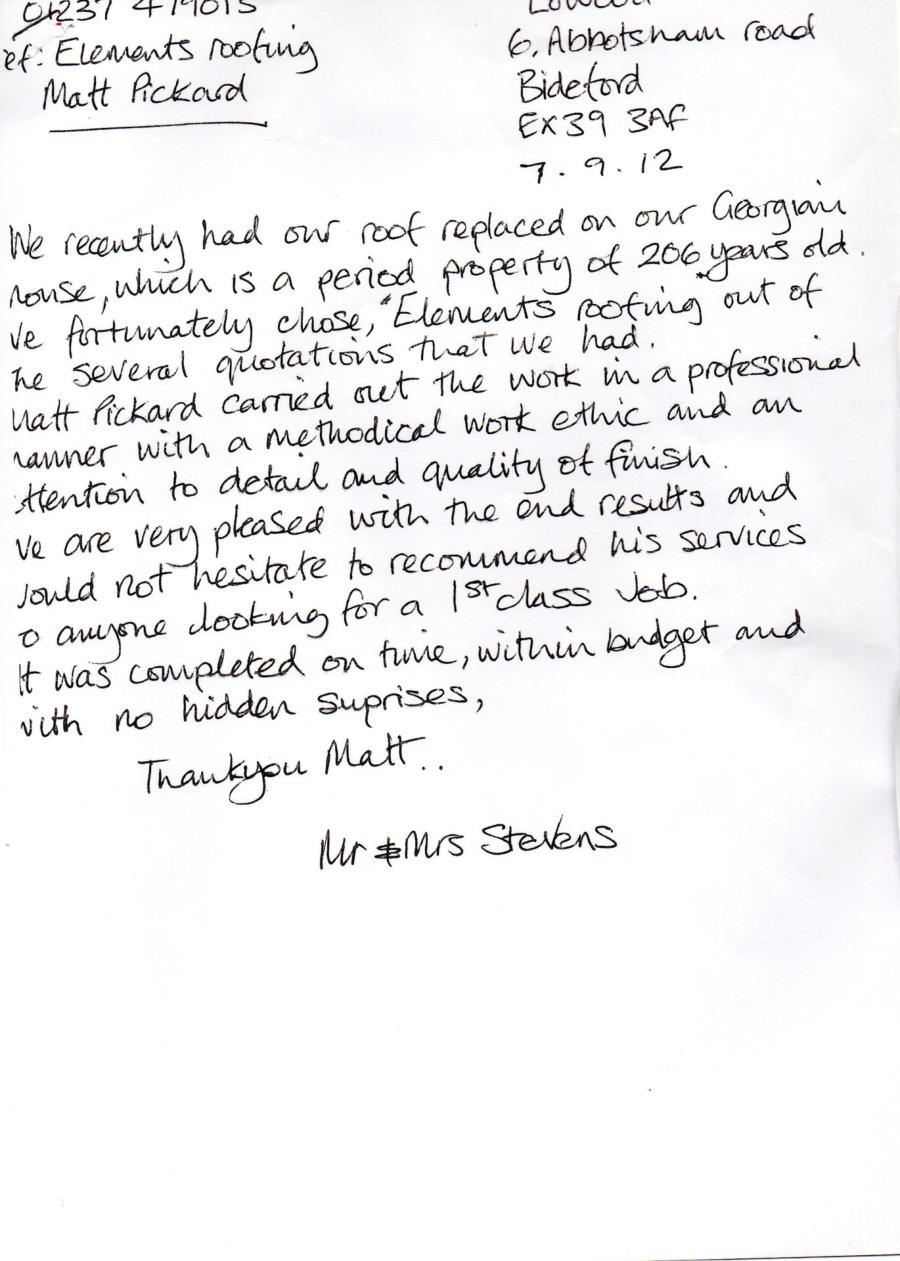 ef: Elements roofing
Matt Pickard
6, Abbotsham road
Bideford
EX39 3AF
7. 9. 12
We recently had our roof replaced on our Georgian
house, which is a period property of 206 years old.
ve fortunately chose, "Elements roofing" out of
he several quotations that we had.
Matt Pickard carried out the work in a professional
manner with a methodical work ethic and an
ttention to detail and quality of finish.
ve are very pleased with the end results and
would not hesitate to recommend his services
o anyone looking for a 1st class Job.
It was completed on time, within budget and
with no hidden suprises,
Thankyou Matt..
Mr & Mrs Stevens